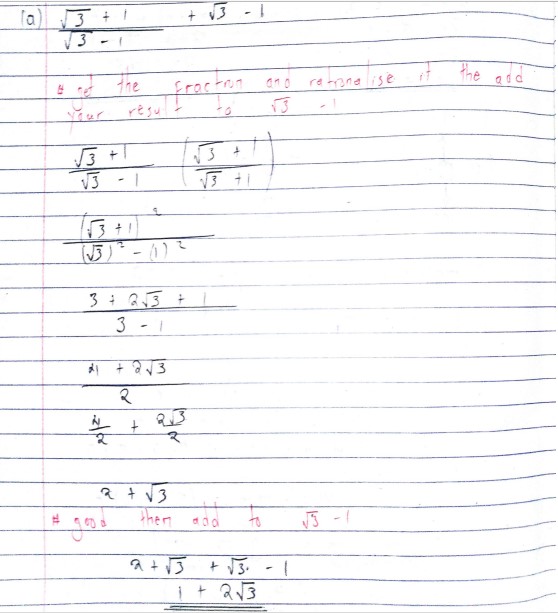 (a) (√3 + 1)/(√3 - 1) + √3 - 1
# get the fraction and rationalise it the add
your result to √3 - 1
(√3 + 1)/(√3 - 1) ((√3 + 1)/(√3 + 1))
(√3 + 1)²/((√3)² - (1)²)
(3 + 2√3 + 1)/(3 - 1)
(4 + 2√3)/2
4/2 + 2√3/2
2 + √3
# good then add to √3 - 1
2 + √3 + √3 - 1
1 + 2√3